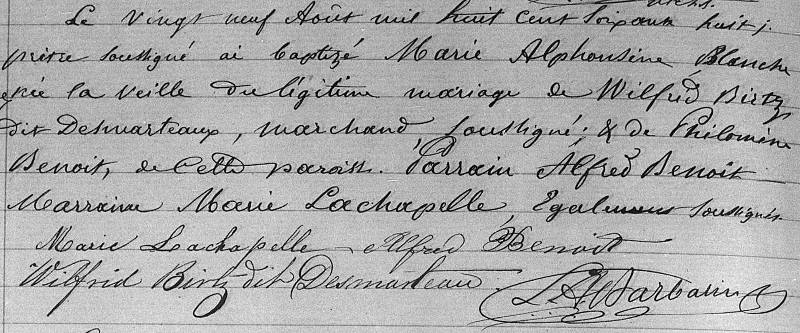 Le vingt neuf Août mil huit cent soixante huit, j.
prêtre soussigné ai baptizé Marie Alphonsine Blanche
née la veille du légitime mariage de Wilfrid Birtz
dit Desmarteaux, marchand, soussigné; & de Philomène
Benoit, de cette paroisse. Parrain Alfred Benoit
Marraine Marie Lachapelle, Egalement soussignés.
Marie Lachapelle Alfred Benoit
Wilfrid Birtz dit Desmarteau L. A. Barbarin